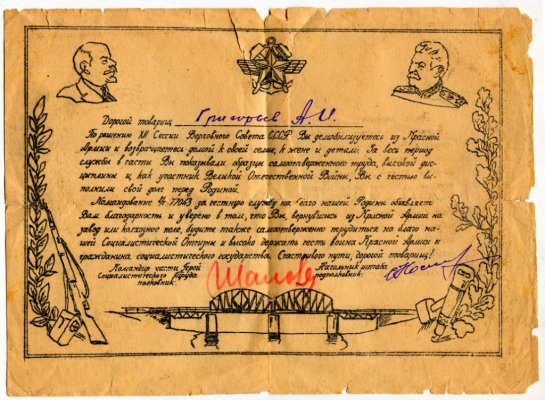 Дорогой товарищ Григорьев А.И.
По решению XII Сессии Верховного Совета СССР Вы демобилизуетесь из Красной
Армии и возвращаетесь домой к своей семье, к жене и детям. За весь период
службы в части Вы показывали образцы самоотверженного труда, высокой дис-
циплины и, как участник Великой Отечественной Войны, Вы с честью вы-
полнили свой долг перед Родиной.
Командование ч. 77043 за честную службу на благо нашей Родины объявляет
Вам благодарность и уверено в том, что Вы, вернувшись из Красной Армии на
завод или колхозное поле, будете также самоотверженно трудиться на благо на-
шей Социалистической Отчизны и высоко держать честь воина Красной Армии и
гражданина социалистического государства. Счастливого пути, дорогой товарищ!
Командир части Герой
Социалистического Труда
полковник:
Начальник штаба
подполковник: